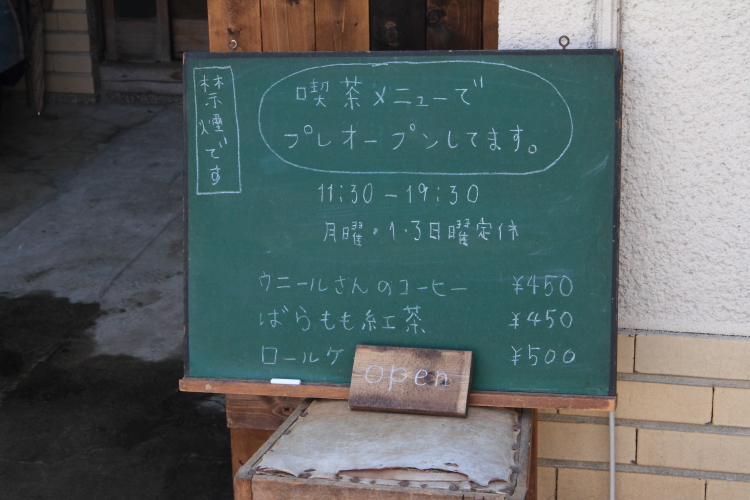 禁煙です
喫茶メニューで
プレオープンしてます。
11:30－19:30
月曜・1・3日曜定休
ウニールさんのコーヒー ¥450
ばらもも紅茶 ¥450
ロールケ ¥500
open